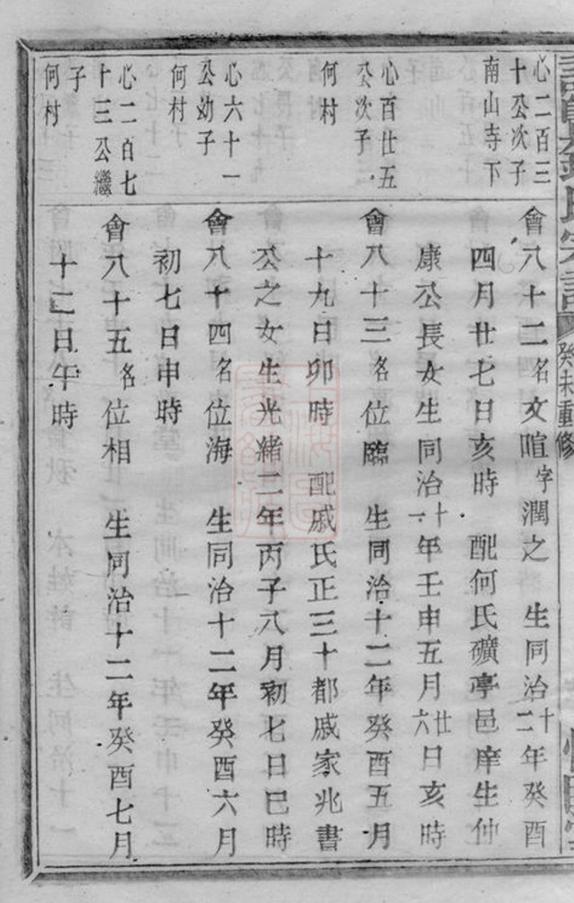 心二百三
十公次子
南山寺下
會八十二名文暄字潤之　生同治十二年癸酉
四月廿七日亥時　配何氏礦亭邑庠生仲
康公長女生同治十一年壬申五月廿六日亥時
心百廿五
公次子
何村
會八十三名位臨　生同治十二年癸酉五月
十九日卯時　配戚氏正三十都戚家兆書
公之女生光緒二年丙子八月初七日巳時
心六十一
公幼子
何村
會八十四名位海　生同治十二年癸酉六月
初七日申時
心二百七
十三公繼
子
何村
會八十五名位相　生同治十二年癸酉七月
十二日午時
癸未重修